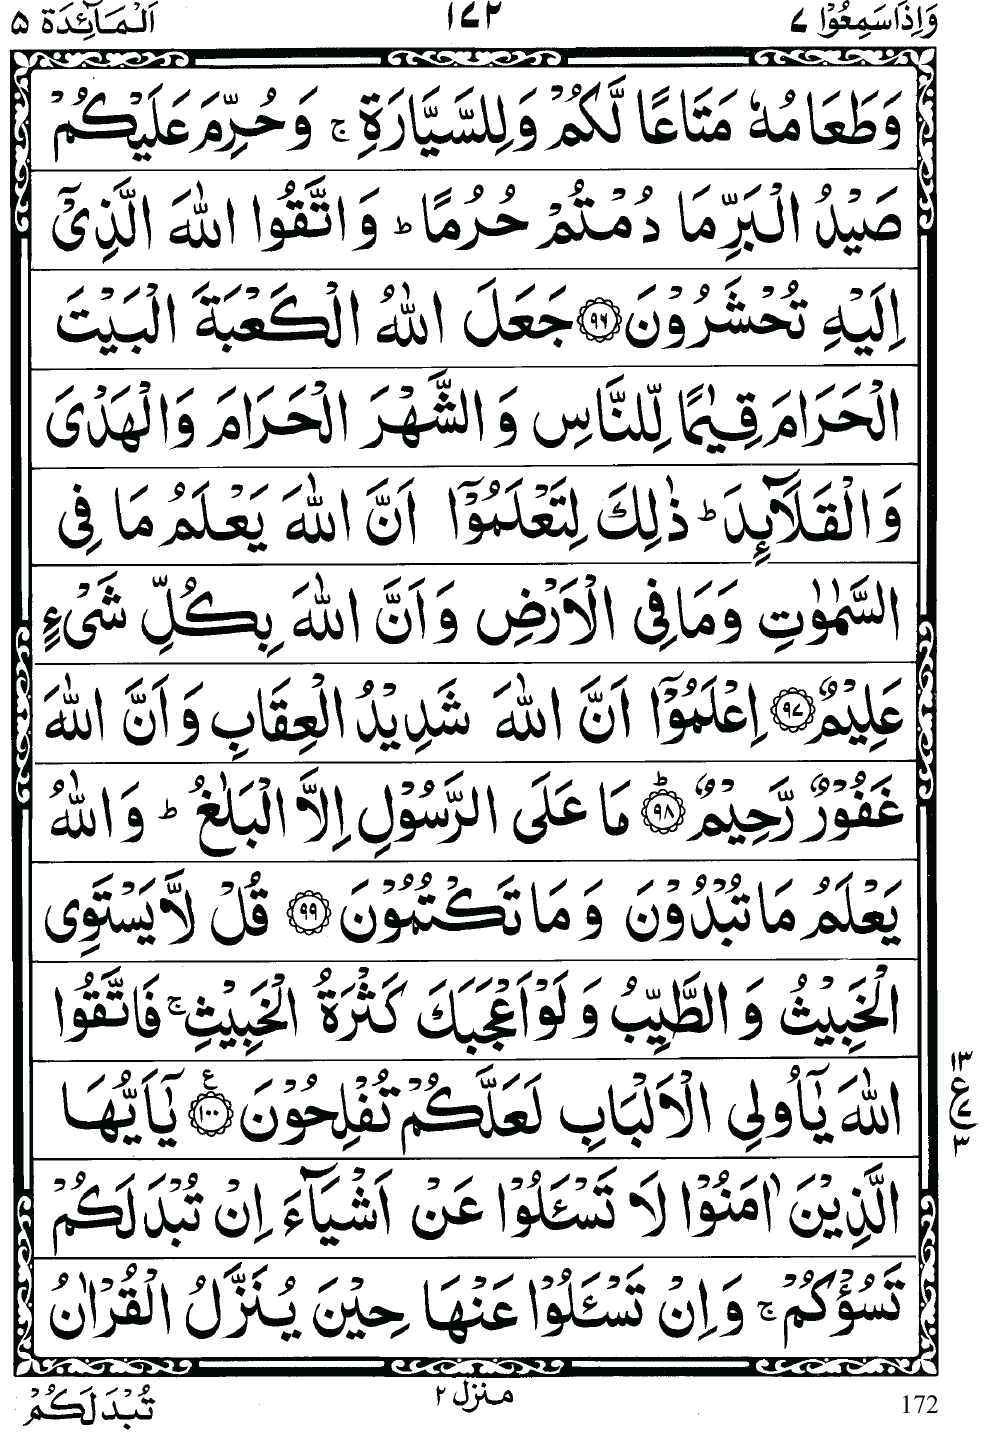 وَاِذَاسَمِعُوْا ٧ ١٧٢ اَلْمَآئِدَة ٥
وَطَعَامُهٗ مَتَاعًا لَّكُمْ وَلِلسَّيَّارَةِ ۚ وَحُرِّمَ عَلَيْكُمْ
صَيْدُ الْبَرِّ مَا دُمْتُمْ حُرُمًا ؕ وَاتَّقُوا اللّٰهَ الَّذِیْۤ
اِلَيْهِ تُحْشَرُوْنَ ﴿٩٦﴾ جَعَلَ اللّٰهُ الْكَعْبَةَ الْبَيْتَ
الْحَرَامَ قِيٰمًا لِّلنَّاسِ وَالشَّهْرَ الْحَرَامَ وَالْهَدْیَ
وَالْقَلَآئِدَ ؕ ذٰلِكَ لِتَعْلَمُوْۤا اَنَّ اللّٰهَ يَعْلَمُ مَا فِی
السَّمٰوٰتِ وَمَا فِی الْاَرْضِ وَاَنَّ اللّٰهَ بِكُلِّ شَیْءٍ
عَلِيْمٌ ﴿٩٧﴾ اِعْلَمُوْۤا اَنَّ اللّٰهَ شَدِيْدُ الْعِقَابِ وَاَنَّ اللّٰهَ
غَفُوْرٌ رَّحِيْمٌ ﴿٩٨﴾ؕ مَا عَلَی الرَّسُوْلِ اِلَّا الْبَلٰغُ ؕ وَاللّٰهُ
يَعْلَمُ مَا تُبْدُوْنَ وَمَا تَكْتُمُوْنَ ﴿٩٩﴾ قُلْ لَّا يَسْتَوِی
الْخَبِيْثُ وَالطَّيِّبُ وَلَوْ اَعْجَبَكَ كَثْرَةُ الْخَبِيْثِ ۚ فَاتَّقُوا
اللّٰهَ يٰۤاُولِی الْاَلْبَابِ لَعَلَّكُمْ تُفْلِحُوْنَ ﴿١٠٠﴾ ع يٰۤاَيُّهَا
١٣
ع ٧
٣
الَّذِيْنَ اٰمَنُوْا لَا تَسْـَٔلُوْا عَنْ اَشْيَآءَ اِنْ تُبْدَ لَكُمْ
تَسُؤْكُمْ ۚ وَاِنْ تَسْـَٔلُوْا عَنْهَا حِيْنَ يُنَزَّلُ الْقُرْاٰنُ
172 منزل ٢ تُبْدَ لَكُمْ